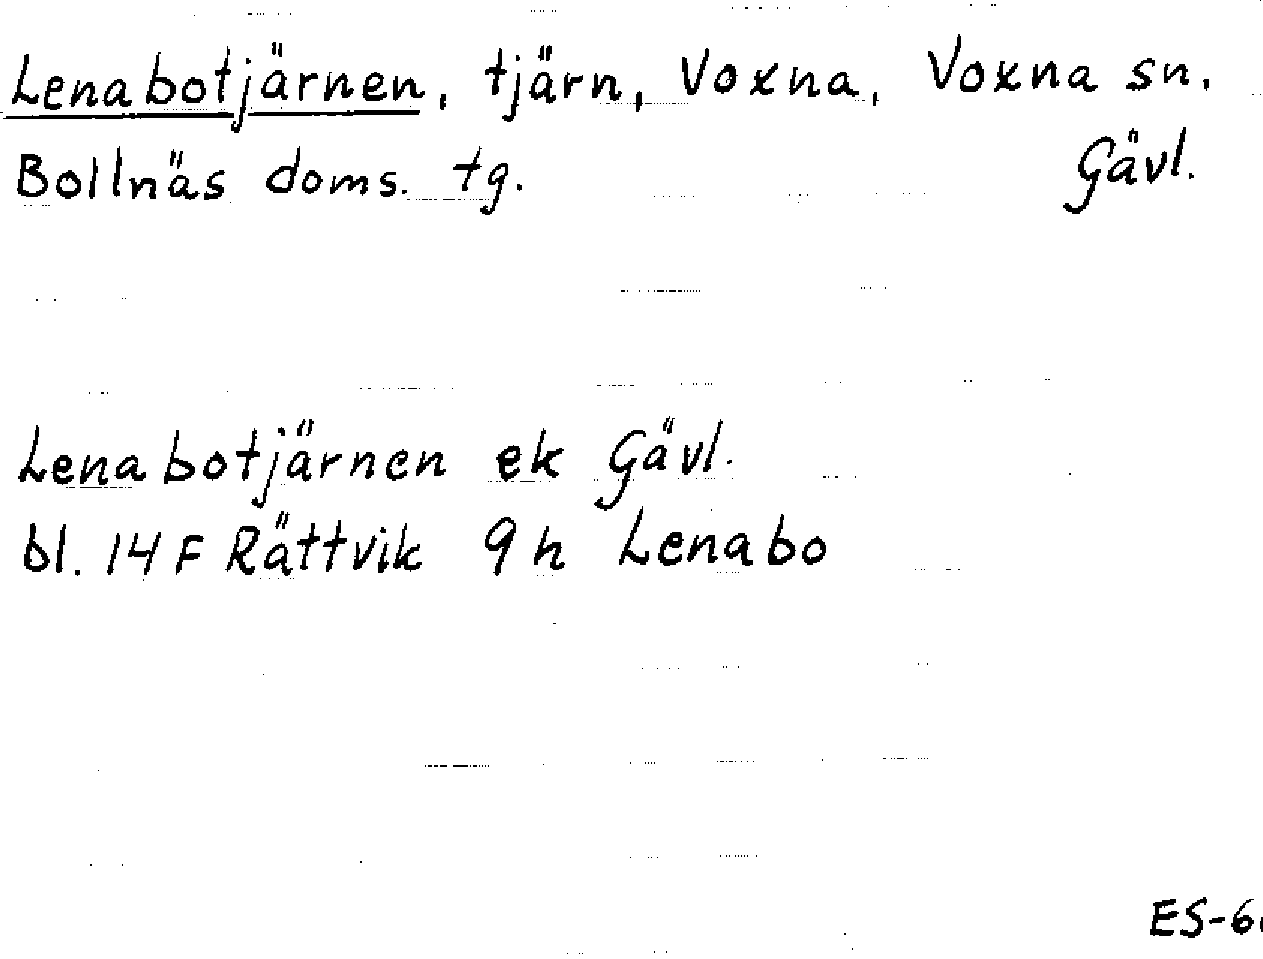 Lenabotjärnen, tjärn, Voxna, Voxna sn.
Bollnäs doms. tg. Gävl.
Lenabotjärnen ek Gävl.
bl. 14 F Rättvik 9h Lenabo